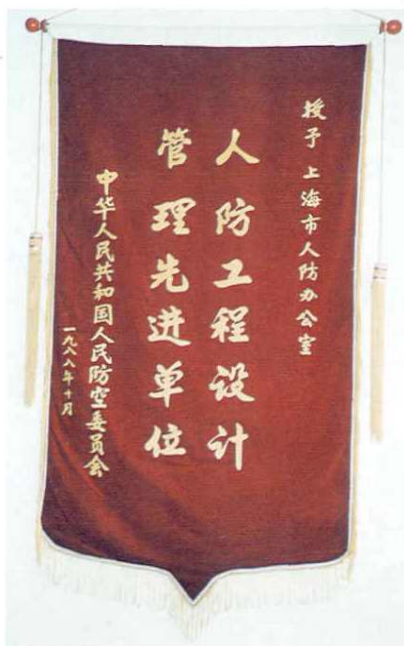 授予 上海市人防办公室
人防工程设计
管理先进单位
中华人民共和国人民防空委员会
一九八八年十月